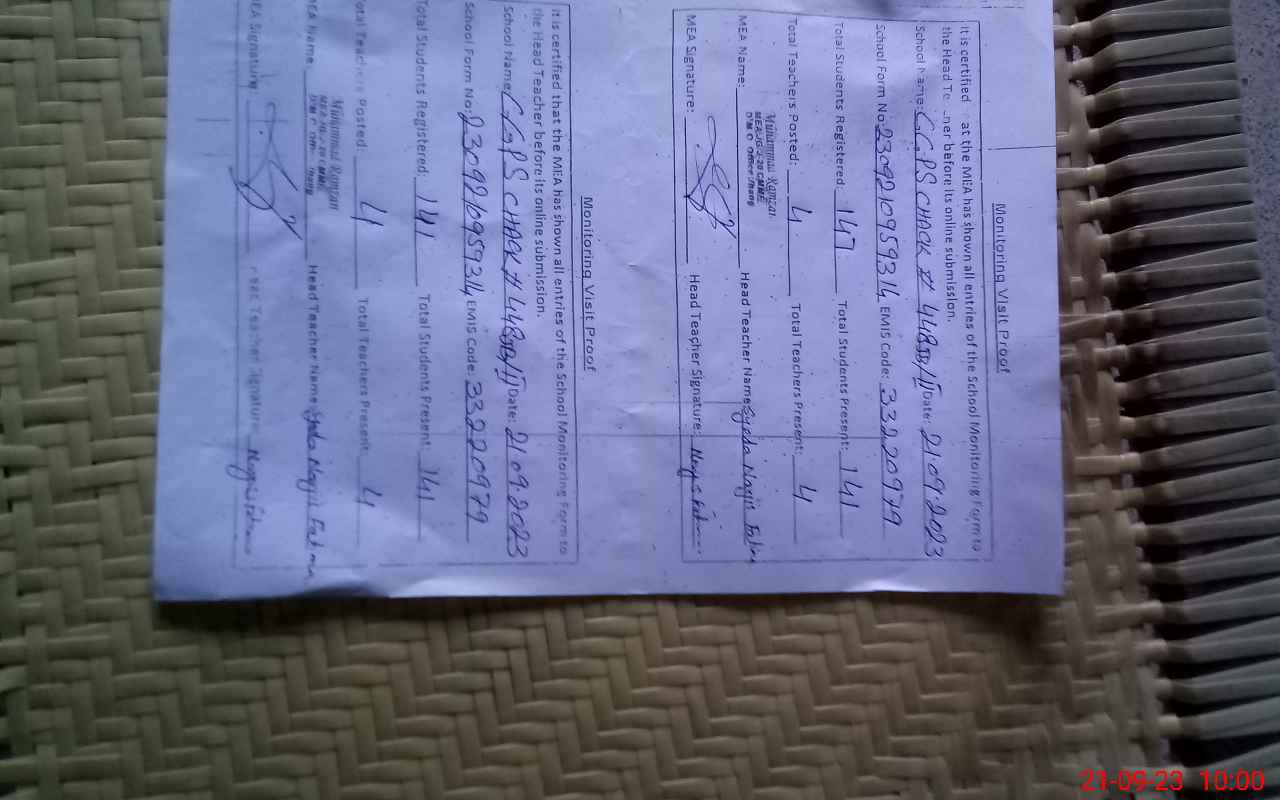 Monitoring Visit Proof
It is certified at the MEA has shown all entries of the School Monitoring Form to
the Head Te ner before its online submission.
School Name: GGPS CHACK # 448JB/II Date: 21.09.2023
School Form No: 2309210959314 EMIS Code: 33220979
Total Students Registered: 141 Total Students Present: 141
Total Teachers Posted: 4 Total Teachers Present: 4
MEA Name: Muhammad Ramzan Head Teacher Name: Syeda Nargis Fatima
D.M.O Office Jhang
MEA Signature: Head Teacher Signature: Nargis Fatima
Monitoring Visit Proof
It is certified that the MEA has shown all entries of the School Monitoring Form to
the Head Teacher before its online submission.
School Name: GGPS CHACK # 448JB/II Date: 21.09.2023
School Form No: 2309210959314 EMIS Code: 33220979
Total Students Registered: 141 Total Students Present: 141
Total Teachers Posted: 4 Total Teachers Present: 4
MEA Name: Muhammad Ramzan Head Teacher Name: Syeda Nargis Fatima
MEA Signature: Head Teacher Signature: Nargis Fatima
21-09-23 10:00